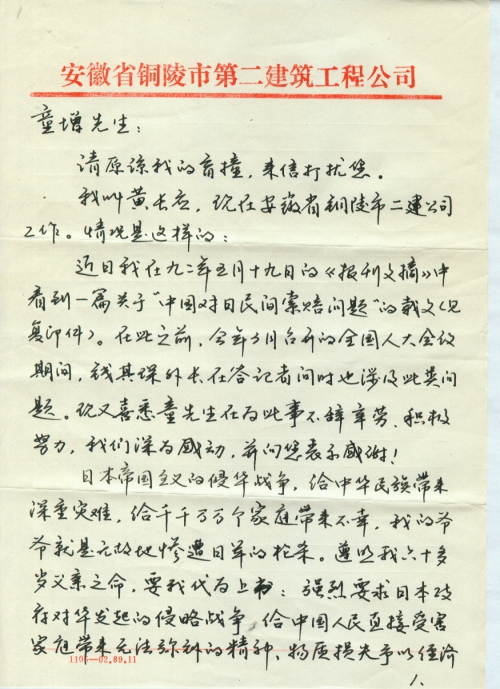 安徽省铜陵市第二建筑工程公司
童增先生：
请原谅我的盲撞，来信打扰您。
我叫黄长应，现在安徽省铜陵市二建公司
工作。情况是这样的：
近日我在九二年五月十九日的《报刊文摘》中
看到一篇关于“中国对日民间索赔问题”的载文（见
复印件）。在此之前，今年3月召开的全国人大会议
期间，钱其琛外长在答记者问时也涉及此类问
题。现又喜悉童先生在为此事不辞辛劳、积极
努力，我们深为感动，并向您表示感谢！
日本帝国主义的侵华战争，给中华民族带来
深重灾难，给千千万万个家庭带来不幸，我的爷
爷就是无故地惨遭日军的枪杀。遵照我六十多
岁父亲之命，要我代为上书：强烈要求日本政
府对华发起的侵略战争，给中国人民直接受害
家庭带来无法弥补的精神、物质损失予以经济
1105—02.89.11
1.